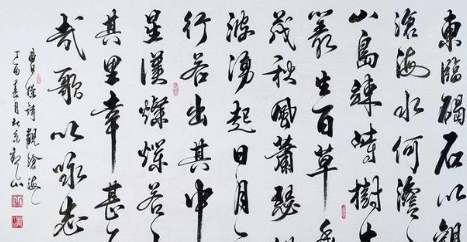 東臨碣石以觀
滄海水何澹
山島竦峙樹
叢生百草
茂秋風蕭瑟
波湧起日月
行若出其中
星漢燦爛若
其里幸甚
哉歌以咏志
曹操詩觀滄海
丁酉春月北京